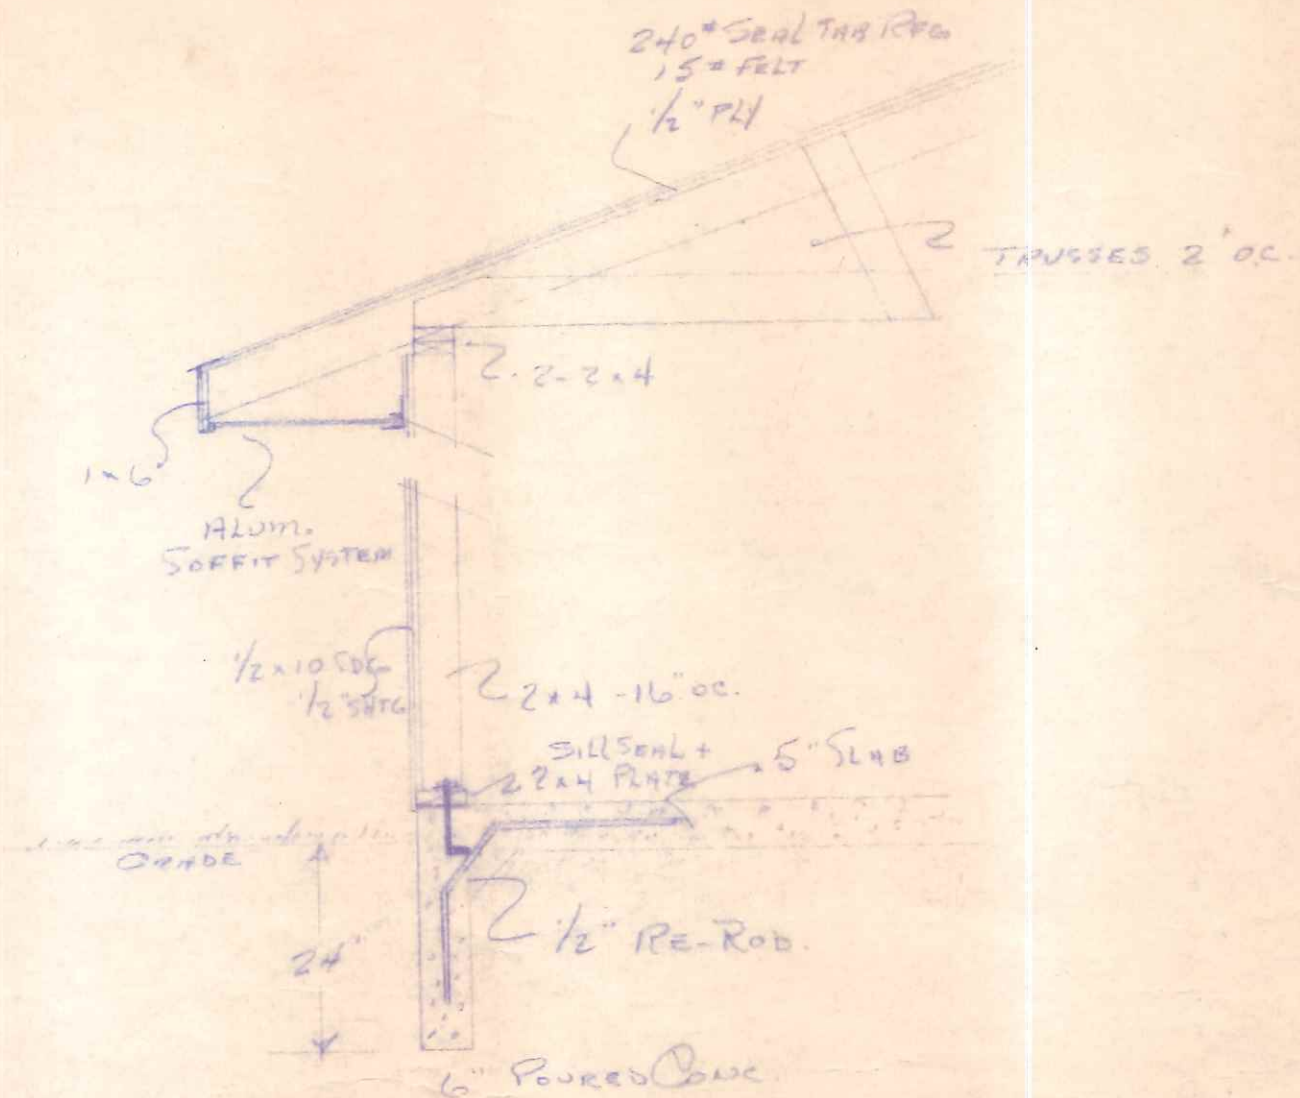 240# SEAL TAB RFG
15# FELT
1/2" PLY
TRUSSES 2' O.C.
2-2x4
1x6
ALUM.
SOFFIT SYSTEM
1/2 x 10 SDG
1/2" SHTG
2x4 -16" OC.
SILL SEAL +
2x4 PLATE
5" SLAB
GRADE
24"
1/2" RE-ROD.
6" POURED CONC.